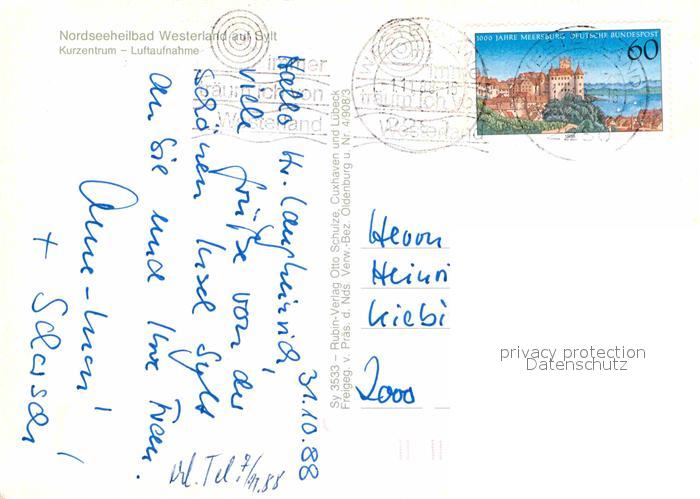 Nordseeheilbad Westerland auf Sylt
Kurzentrum – Luftaufnahme
immer
träum ich von
Westerland
immer
träum ich vo
Westerland
1000 JAHRE MEERSBURG DEUTSCHE BUNDESPOST
60
1988
31.10.88
Hallo Hr.
viele Grüße von der
schönen Insel Sylt
an Sie und Ihre Frau.
+
Sy 3533 – Rubin-Verlag Otto Schulze, Cuxhaven und Lübeck
Freigeg. v. Präs. d. Nds. Verw.-Bez. Oldenburg u. Nr. 4/9083
Herrn
Heinri
Kiebi
2000
privacy protection
Datenschutz